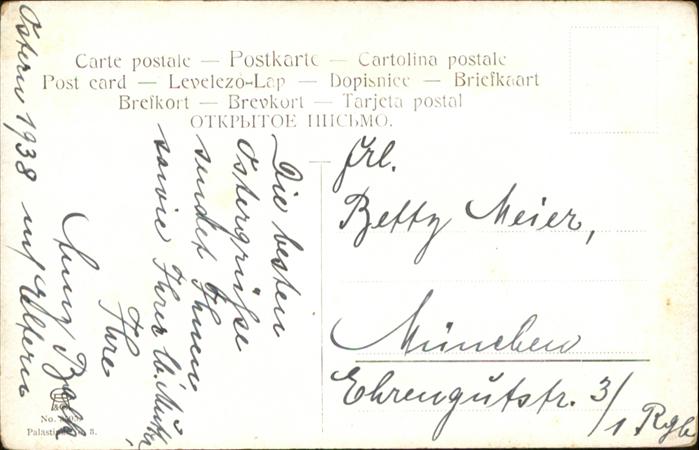 Carte postale — Postkarte — Cartolina postale
Post card — Levelező-Lap — Dopisnice — Briefkaart
Brefkort — Brevkort — Tarjeta postal
ОТКРЫТОЕ ПИСЬМО.
Ostern 1938
Die besten
Ostergrüße
sendet Ihnen
sowie Ihrer lb. Mutter,
Ihre
u. Eltern
Frl.
Betty Meier,
München
Ehrengutstr. 3/
1 Rgb
No.